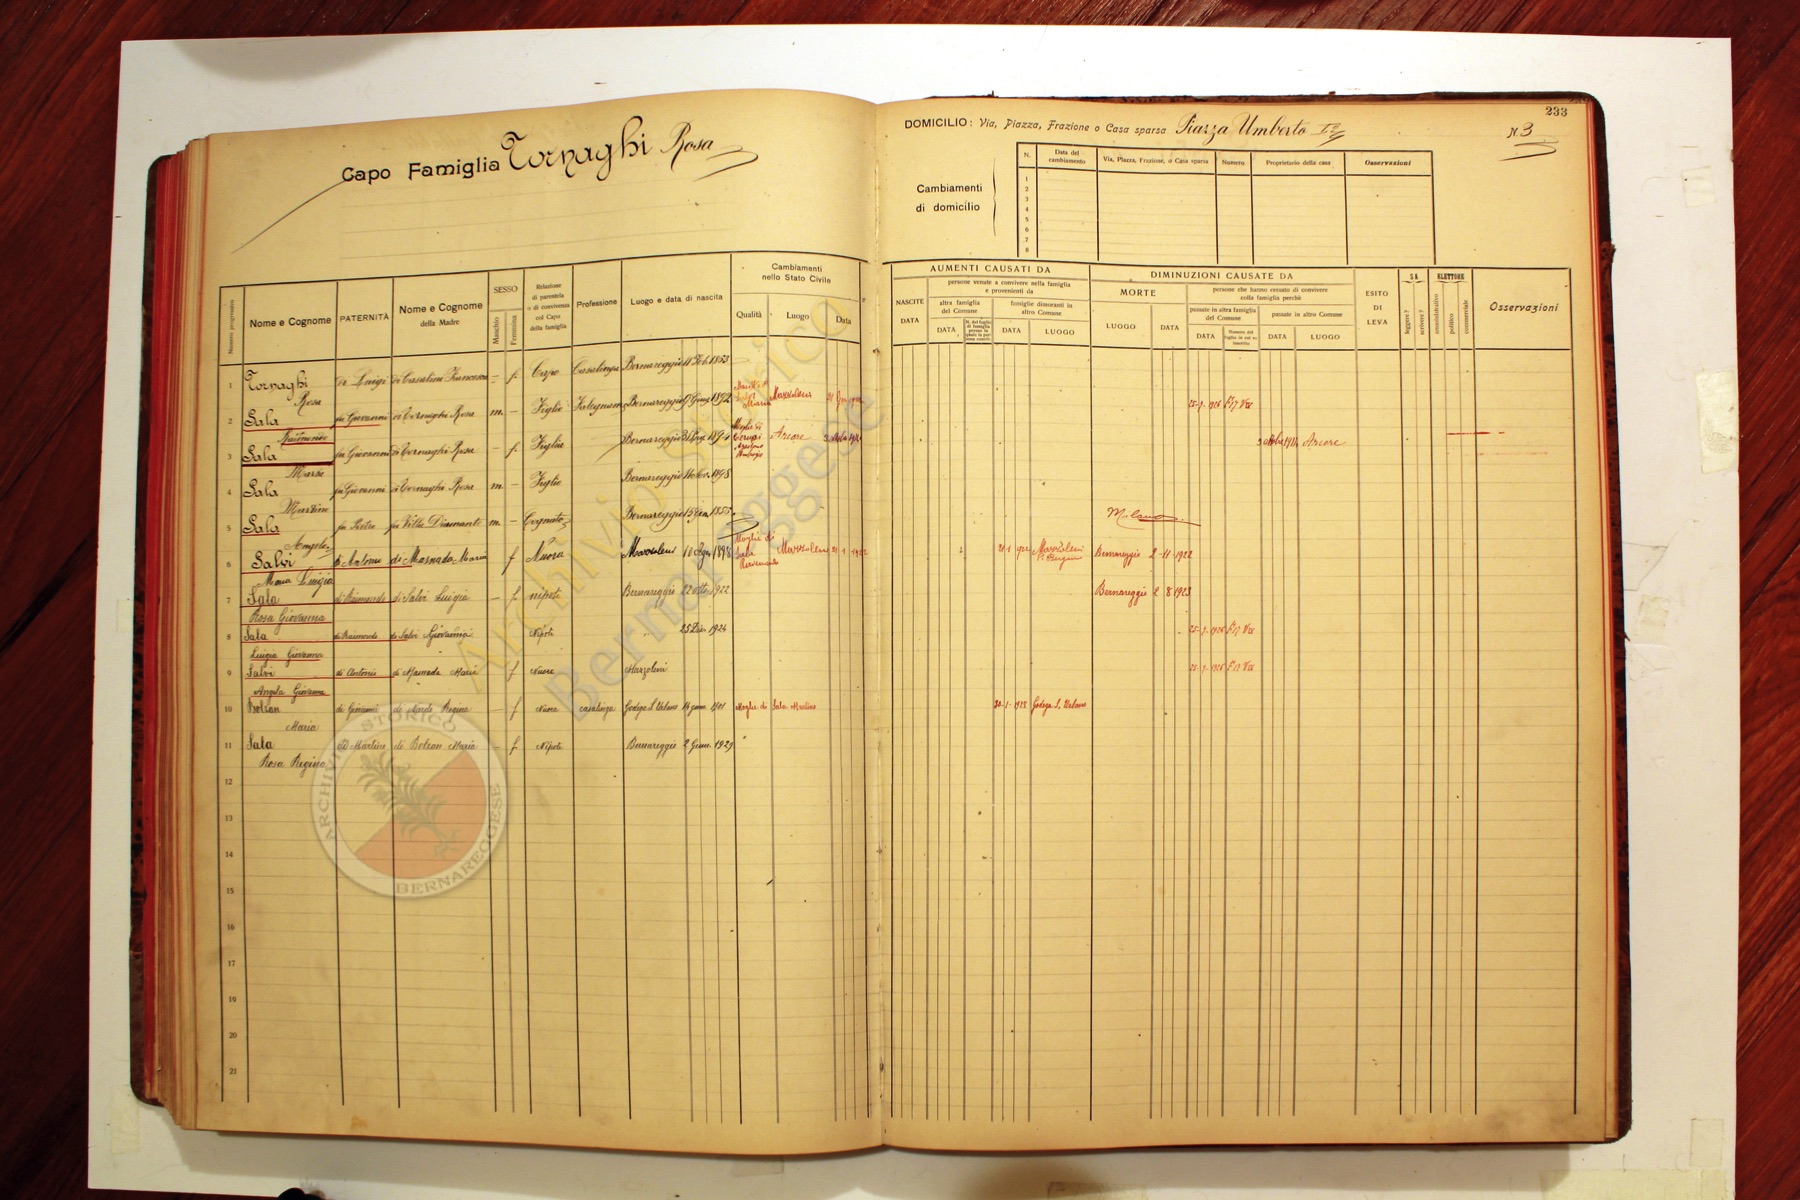 233
Capo Famiglia Tornaghi Rosa
DOMICILIO: Via, Piazza, Frazione o Casa sparsa Piazza Umberto I° N. 3
Cambiamenti di domicilio
N. Data del cambiamento Via, Piazza, Frazione, o Casa sparsa Numero Proprietario della casa Osservazioni
1
2
3
4
5
6
7
8
Numero progressivo
Nome e Cognome
PATERNITÀ
Nome e Cognome della Madre
SESSO
Maschio
Femmina
Relazione di parentela o di convivenza col Capo della famiglia
Professione
Luogo e data di nascita
Cambiamenti nello Stato Civile
Qualità Luogo Data
AUMENTI CAUSATI DA
NASCITE DATA
persone venute a convivere nella famiglia e provenienti da
altra famiglia del Comune
DATA
famiglie dimoranti in altro Comune
DATA LUOGO
DIMINUZIONI CAUSATE DA
MORTE
LUOGO DATA
persone che hanno cessato di convivere colla famiglia perchè
passate in altra famiglia del Comune
DATA
passate in altro Comune
DATA LUOGO
ESITO DI LEVA
SA
leggere?
scrivere?
ELETTORE
amministrativo
politico
commerciale
Osservazioni
1 Tornaghi Rosa di Luigi di Casalini Francesca – f. Capo Casalinga Bernareggio 11 Feb. 1853
2 Sala Raimondo fu Giovanni di Tornaghi Rosa m. – Figlio Falegname Bernareggio 9 Giug 1892 Mazzoleni 21 1922 25-9-1926
3 Sala Maria fu Giovanni di Tornaghi Rosa – f. Figlia Bernareggio Moglie di Arcore Arcore
4 Sala Martino fu Giovanni di Tornaghi Rosa m. – Figlio Bernareggio 1898
5 Sala Angelo fu Pietro fu Villa Diamante m. – Cognato Bernareggio 15 Gen. 1855 Milano
6 Salvi Maria Luigia di Antonio di Masnada Maria f Nuora Mazzoleni 1898 Moglie di Sala Mazzoleni 21 1 1922 21-1 922 Mazzoleni Bernareggio 2-11-1922
7 Sala Rosa Giovanna di Raimondo di Salvi Luigia – f. nipote Bernareggio 22 otto. 1922 Bernareggio 2 8 1923
8 Sala Luigia Giovanna di Raimondo di Salvi Giovanna Nipote " 25 Dic. 1924 25-9-1926
9 Salvi Angela Giovanna di Antonio di Masnada Maria f Nuora Mazzoleni 25-9-1926
10 Bolzan Maria di Giovanni de Nardo Regina – f Nuora casalinga Godega S. Urbano 14 genn. 1901 Moglie di Sala Martino 30-1-1928 Godega S. Urbano
11 Sala Rosa Regina di Martino di Bolzan Maria – f. Nipote Bernareggio 2 Genn. 1929
12
13
14
15
16
17
18
19
20
21
Archivio Storico
Bernareggese
ARCHIVIO STORICO
BERNAREGGESE